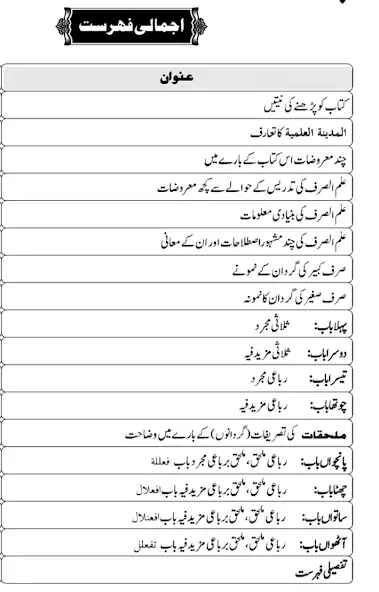 اجمالی فهرست
عنوان
کتاب کو پڑھنے کی نیتیں
المدینة العلمیة کا تعارف
چند معروضات اس کتاب کے بارے میں
علم الصرف کی تدریس کے حوالے سے کچھ معروضات
علم الصرف کی بنیادی معلومات
علم الصرف کی چند مشہور اصطلاحات اور ان کے معانی
صرف کبیر کی گردان کے نمونے
صرف صغیر کی گردان کا نمونہ
پہلا باب: ثلاثی مجرد
دوسرا باب: ثلاثی مزید فیہ
تیسرا باب: رباعی مجرد
چوتھا باب: رباعی مزید فیہ
ملحقات کی تصریفات (گردانوں) کے بارے میں وضاحت
پانچواں باب: رباعی ملحق، ملحق برباعی مجرد باب فعللة
چھٹا باب: رباعی ملحق، ملحق برباعی مزید فیہ باب افعلال
ساتواں باب: رباعی ملحق، ملحق برباعی مزید فیہ باب افعنلال
آٹھواں باب: رباعی ملحق، ملحق برباعی مزید فیہ باب تفعلل
تفصیلی فہرست